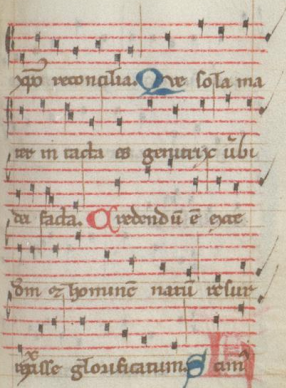 xpo reconcilia. Que sola ma
ter in tacta es genitrix v̄bi
da facta. Credendū ē exte
dm̄ ⁊ hominē natū resur
rexisse glorificatum. Scim